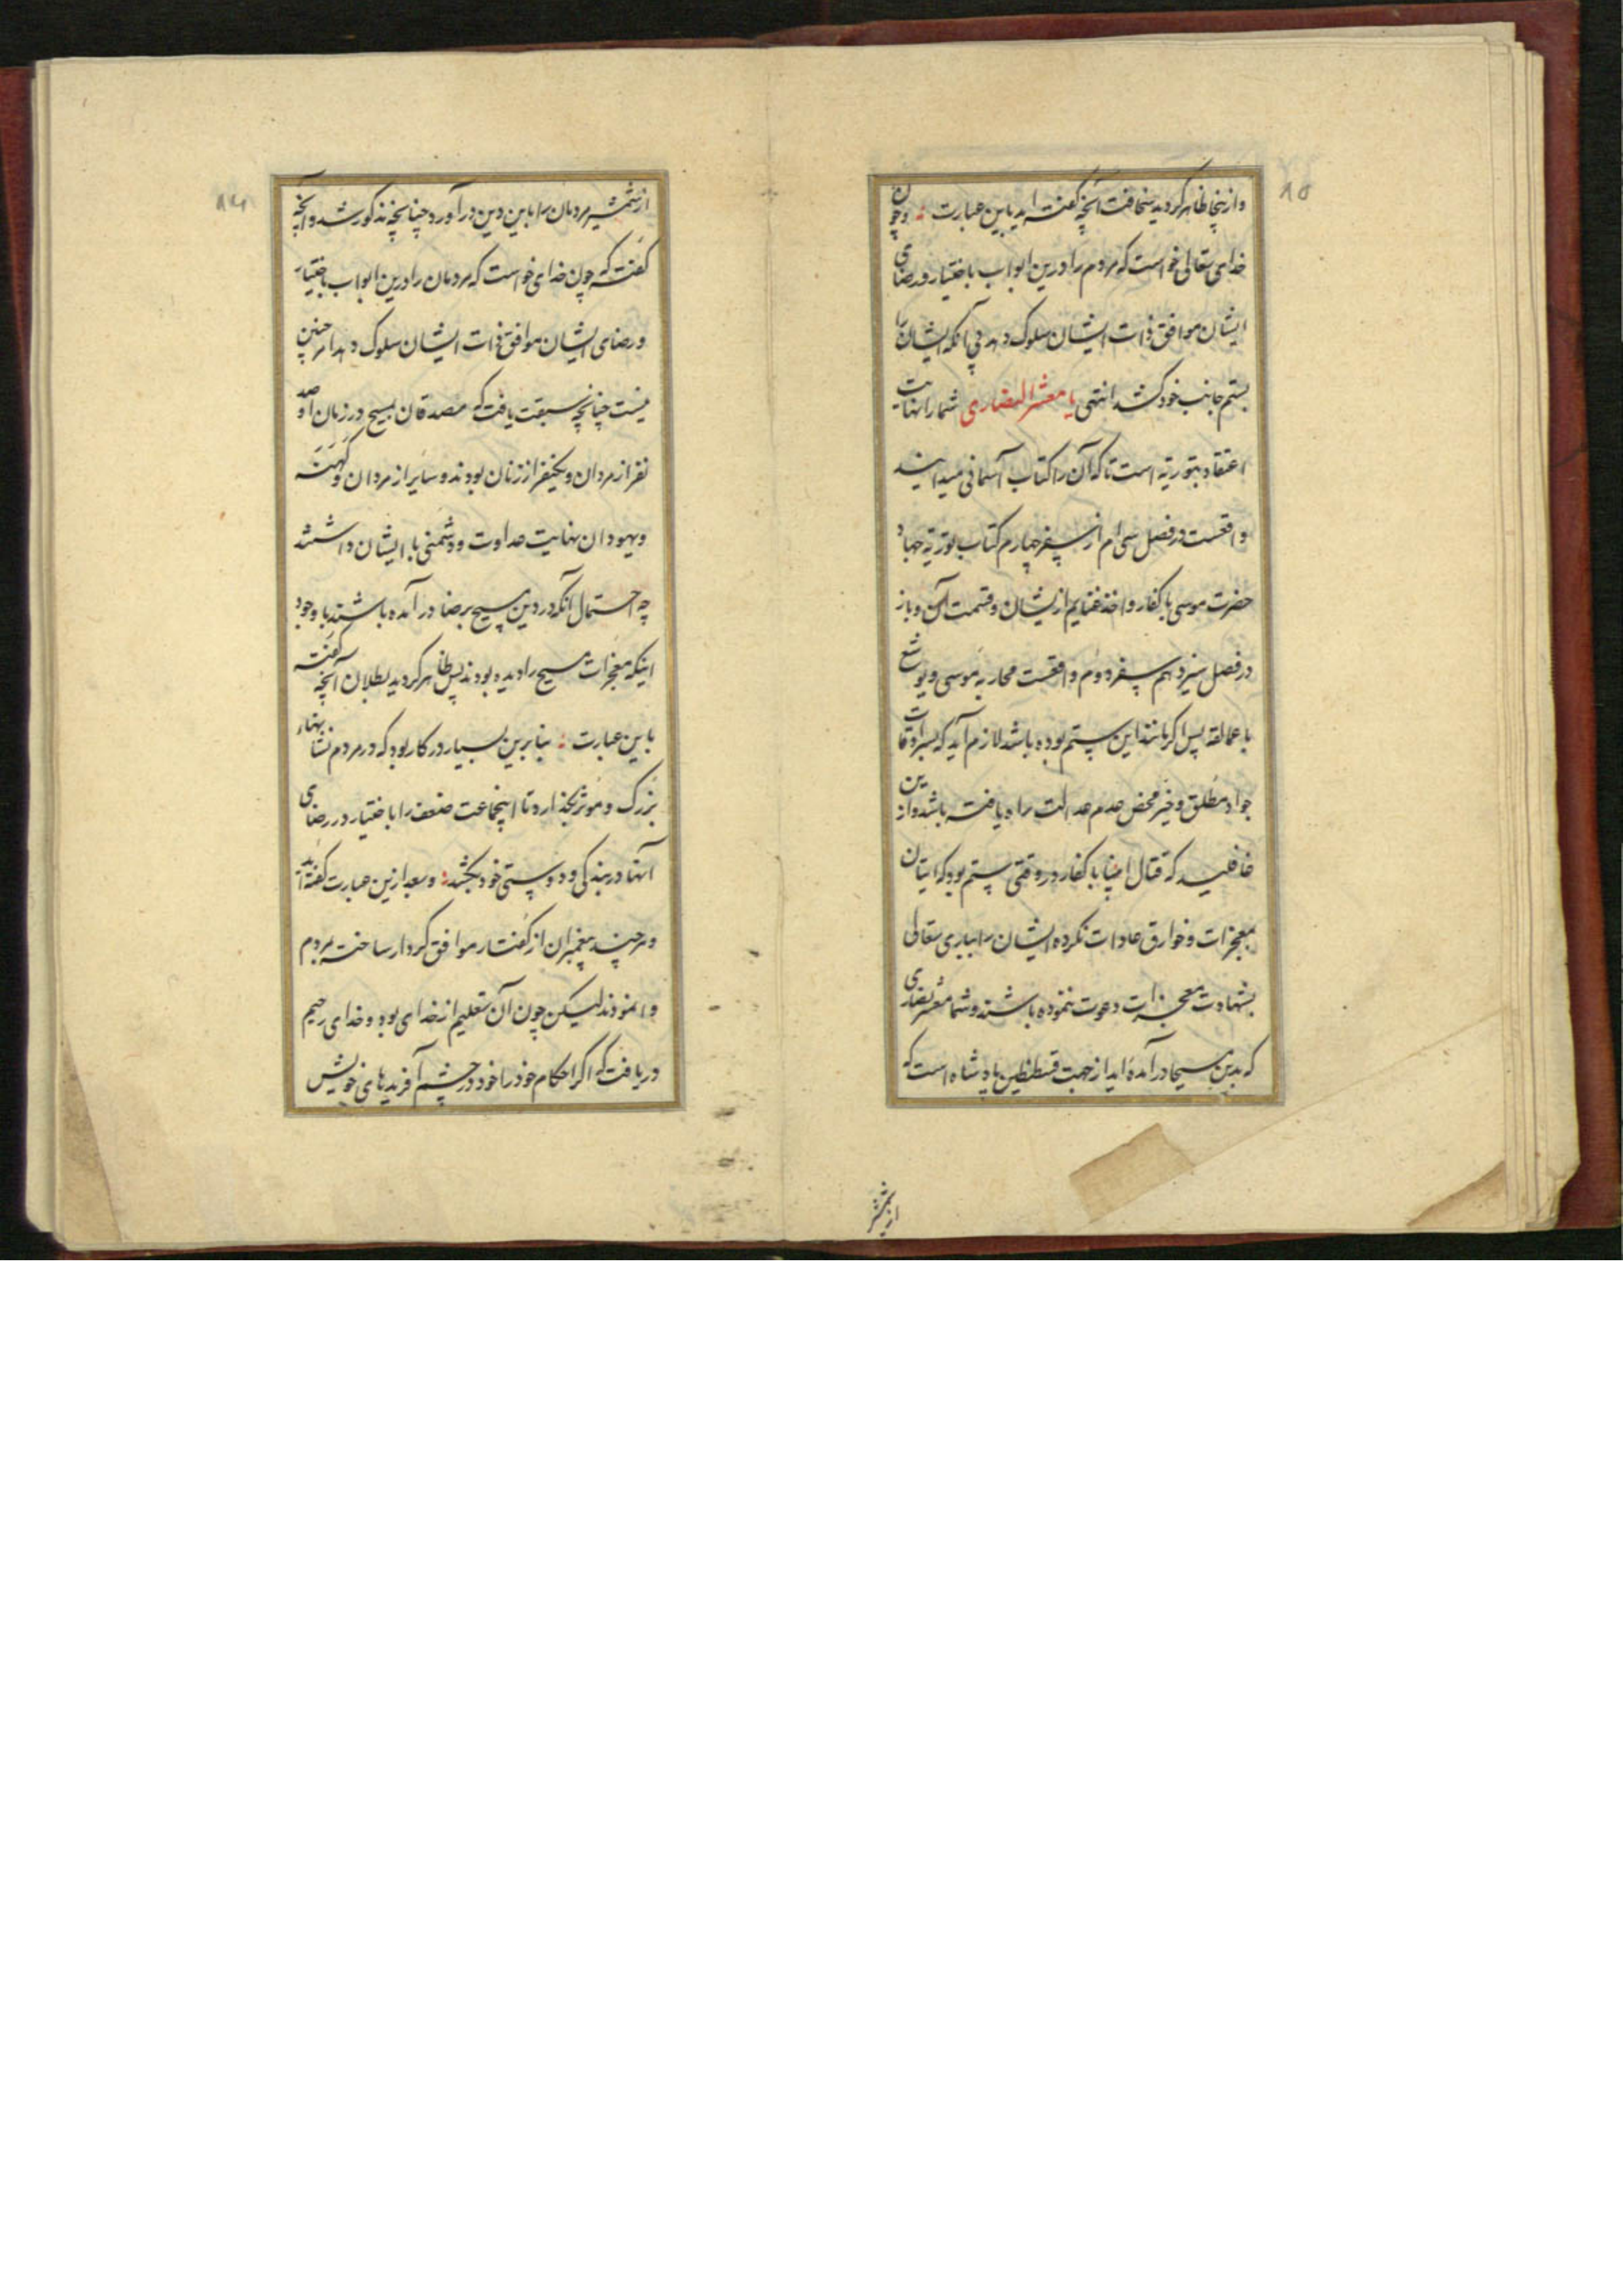 وازینجا ظاهر گردید سخافت آنچه گفته اید باین عبارت : وچون
خدای تعالی خواست که مردم را درین ابواب باختیار ورضای
ایشان موافق ذات ایشان سلوک دهد بی آنکه ایشان را
بستم جانب خود کشد انتهی یا معشر النصاری شما را نهایت
اعتقاد بتوریة است تا که آن را کتاب آسمانی میدانید
و اقعست در فصل سی ام از سفر چهارم کتاب توریة جهاد
حضرت موسی با کفار و اخذ غنایم ازیشان وقسمت آن و باز
در فصل سیزدهم سفر دوم واقعست محاربهٔ موسی و یوشع
با عمالقه پس اکر مانند این ستم بوده باشد لازم آید که بسرادقات
جواد مطلق وخیر محض عدم عدالت راه یافته باشد وازین
غافلید که قتال انبیا با کفار در وقتی ستم بود که اتیان
بمعجزات و خوارق عادات نکرده ایشان را بباری تعالی
بشهادت معجزات دعوت ننموده باشند وشما معشر نصاری
که بدین مسیحا درآمده اید از جهت قسطنطین پادشاه است که
از شمشیر
از شمشیر مردمان را باین دین درآورد چنانچه مذکور شد وآنچه
گفته که چون خدای خواست که مردمان را درین ابواب باختیار
ورضای ایشان موافق ذات ایشان سلوک دهد امر چنین
نیست چنانچه سبقت یافت که مصدقان مسیح در زمان او صد
نفر از مردان ویکنفر از زنان بودند وسایر از مردان وکهنه
ویهودان نهایت عداوت ودشمنی با ایشان داشتند
چه احتمال آنکه در دین مسیح برضا درآمده باشند با وجود
اینکه معجزات مسیح را دیده بودند پس ظاهر گردید بطلان آنچه گفته
باین عبارت : بنابرین بسیار در کار بود که در مردم نشانهاء
بزرک و موثر بگذارد تا اینجماعت ضعف را باختیار در رضای
آنها در بندگی ودوستی خود بکشد : وبعد ازین عبارت گفته اند
وهرچند پیغمبران از گفتار موافق کردار ساخته بمردم
وا نمودند لیکن چون آن تعلیم از خدای بود وخدای رحیم
دریافت که اکر احکام خود را خود در چشم آفریدهای خویش